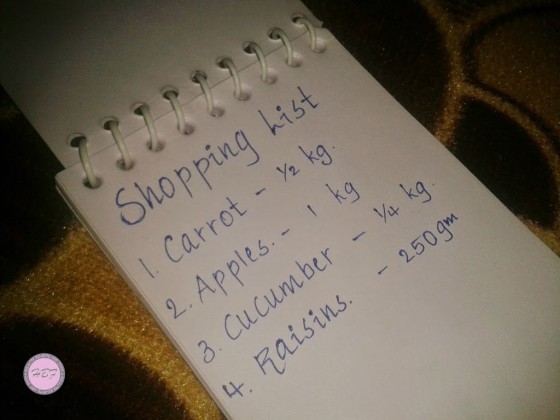 Shopping List
1. Carrot - ½ kg.
2. Apples. - 1 kg
3. Cucumber - ¼ kg.
4. Raisins. - 250gm
HBF